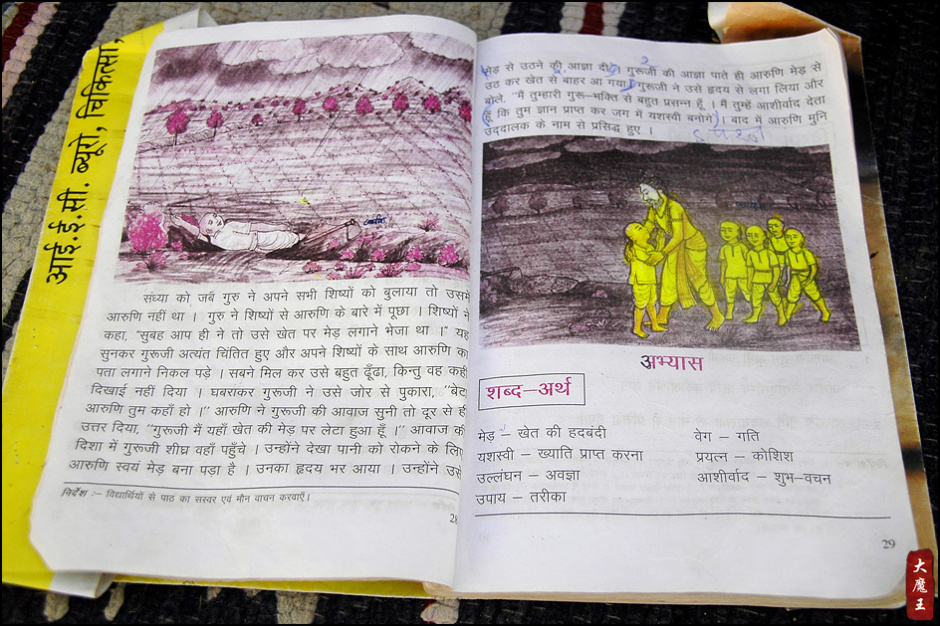 आई.ई.सी. ब्यूरो, चिकित्सा,
संध्या को जब गुरु ने अपने सभी शिष्यों को बुलाया तो उसमें
आरुणि नहीं था । गुरु ने शिष्यों से आरुणि के बारे में पूछा । शिष्यों ने
कहा, "सुबह आप ही ने तो उसे खेत पर मेड़ लगाने भेजा था ।" यह
सुनकर गुरूजी अत्यंत चिंतित हुए और अपने शिष्यों के साथ आरुणि का
पता लगाने निकल पड़े । सबने मिल कर उसे बहुत ढूँढा, किन्तु वह कहीं
दिखाई नहीं दिया । घबराकर गुरूजी ने उसे जोर से पुकारा, "बेटा
आरुणि तुम कहाँ हो ।" आरुणि ने गुरूजी की आवाज सुनी तो दूर से ही
उत्तर दिया, "गुरूजी मैं यहाँ खेत की मेड़ पर लेटा हुआ हूँ ।" आवाज की
दिशा में गुरूजी शीघ्र वहाँ पहुँचे । उन्होंने देखा पानी को रोकने के लिए
आरुणि स्वयं मेड़ बना पड़ा है । उनका हृदय भर आया । उन्होंने उसे
निर्देश :– विद्यार्थियों से पाठ का सस्वर एवं मौन वाचन करवाएँ।
मेड़ से उठने की आज्ञा दी। गुरूजी की आज्ञा पाते ही आरुणि मेड़ से
उठ कर खेत से बाहर आ गया। गुरूजी ने उसे हृदय से लगा लिया और
बोले, "मैं तुम्हारी गुरू–भक्ति से बहुत प्रसन्न हूँ । मैं तुम्हें आशीर्वाद देता
हूँ कि तुम ज्ञान प्राप्त कर जग में यशस्वी बनोगे। बाद में आरुणि मुनि
उद्दालक के नाम से प्रसिद्ध हुए ।
अभ्यास
शब्द–अर्थ
मेड़ – खेत की हदबंदी
वेग – गति
यशस्वी – ख्याति प्राप्त करना
प्रयत्न – कोशिश
उल्लंघन – अवज्ञा
आशीर्वाद – शुभ–वचन
उपाय – तरीका
29
大魔王